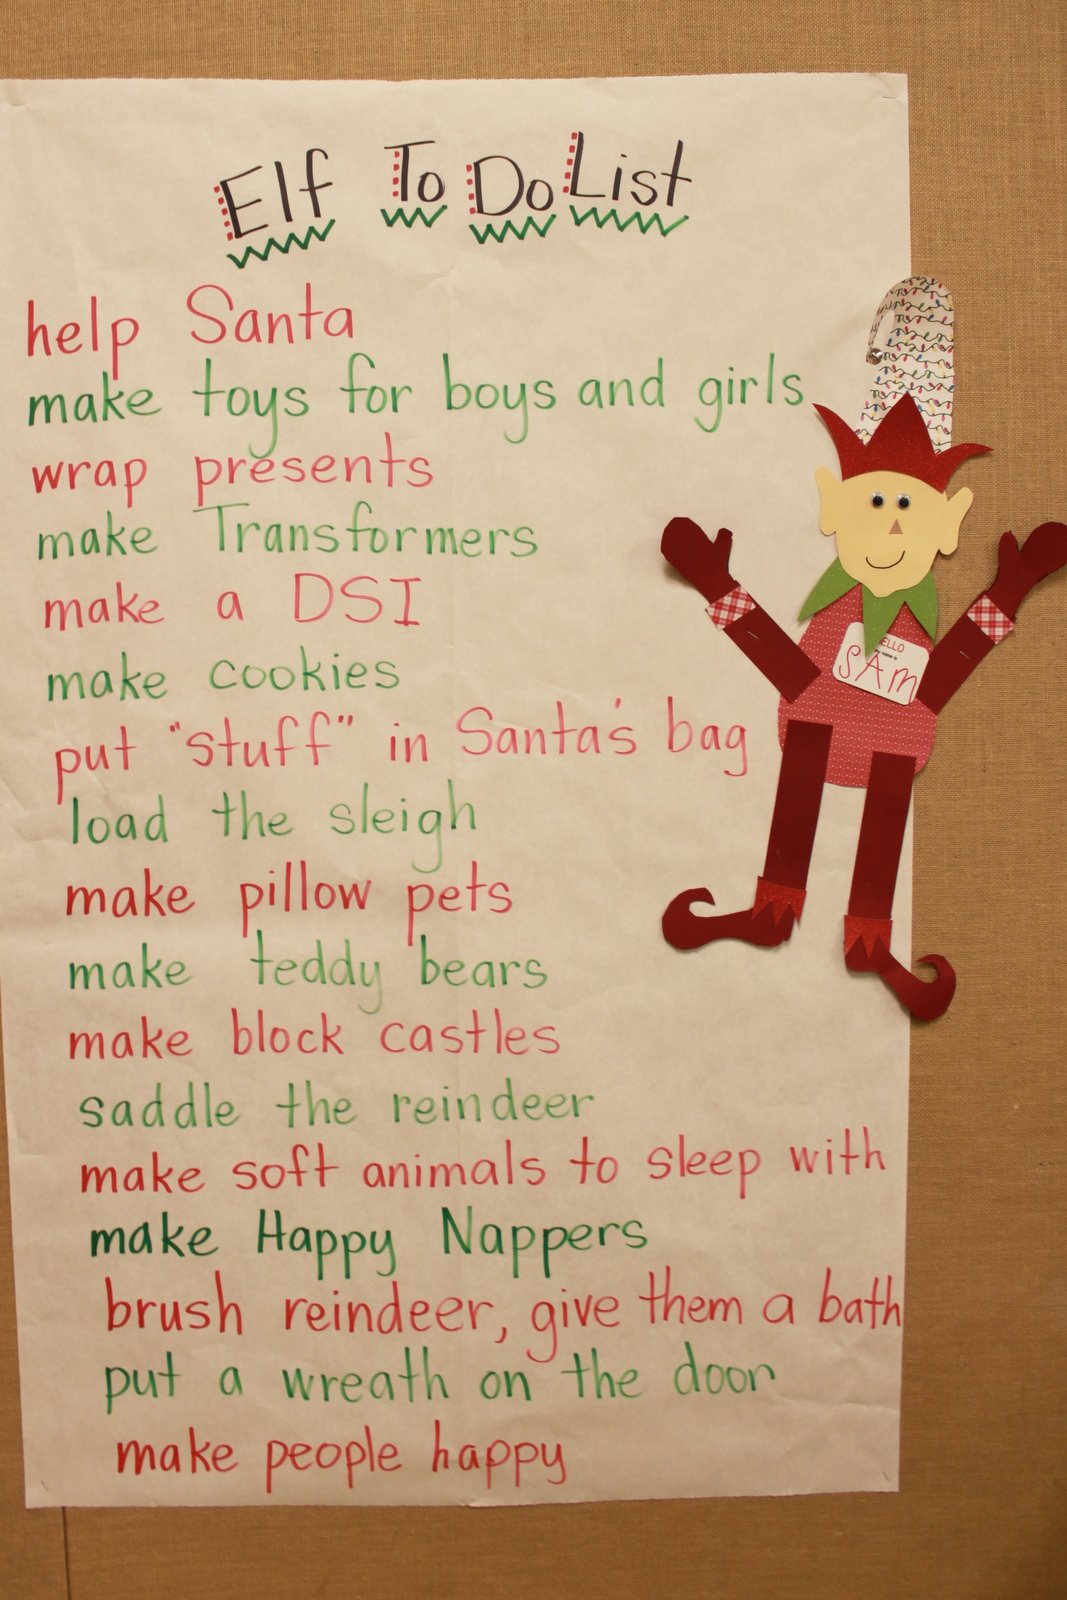 Elf To Do List
help Santa
make toys for boys and girls
wrap presents
make Transformers
make a DSI
make cookies
put "stuff" in Santa's bag
load the sleigh
make pillow pets
make teddy bears
make block castles
saddle the reindeer
make soft animals to sleep with
make Happy Nappers
brush reindeer, give them a bath
put a wreath on the door
make people happy
HELLO
my name is
SAM